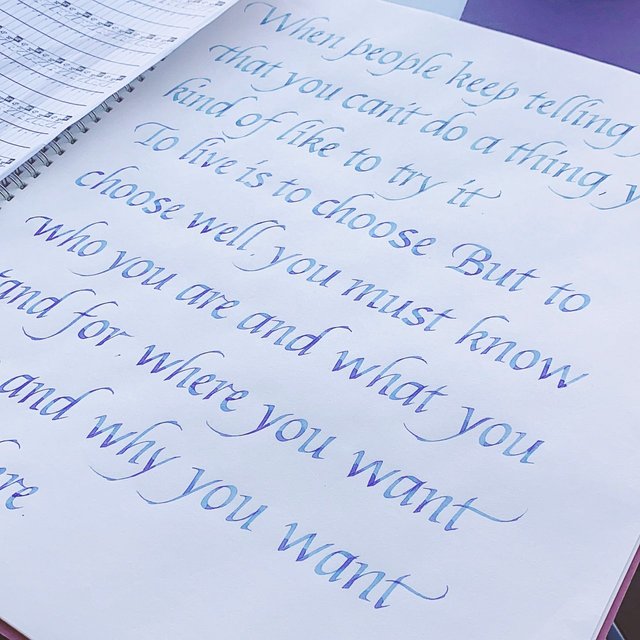 When people keep telling
that you can't do a thing, y
kind of like to try it
To live is to choose But to
choose well, you must know
who you are and what you
tand for, where you want
and why you want
ere